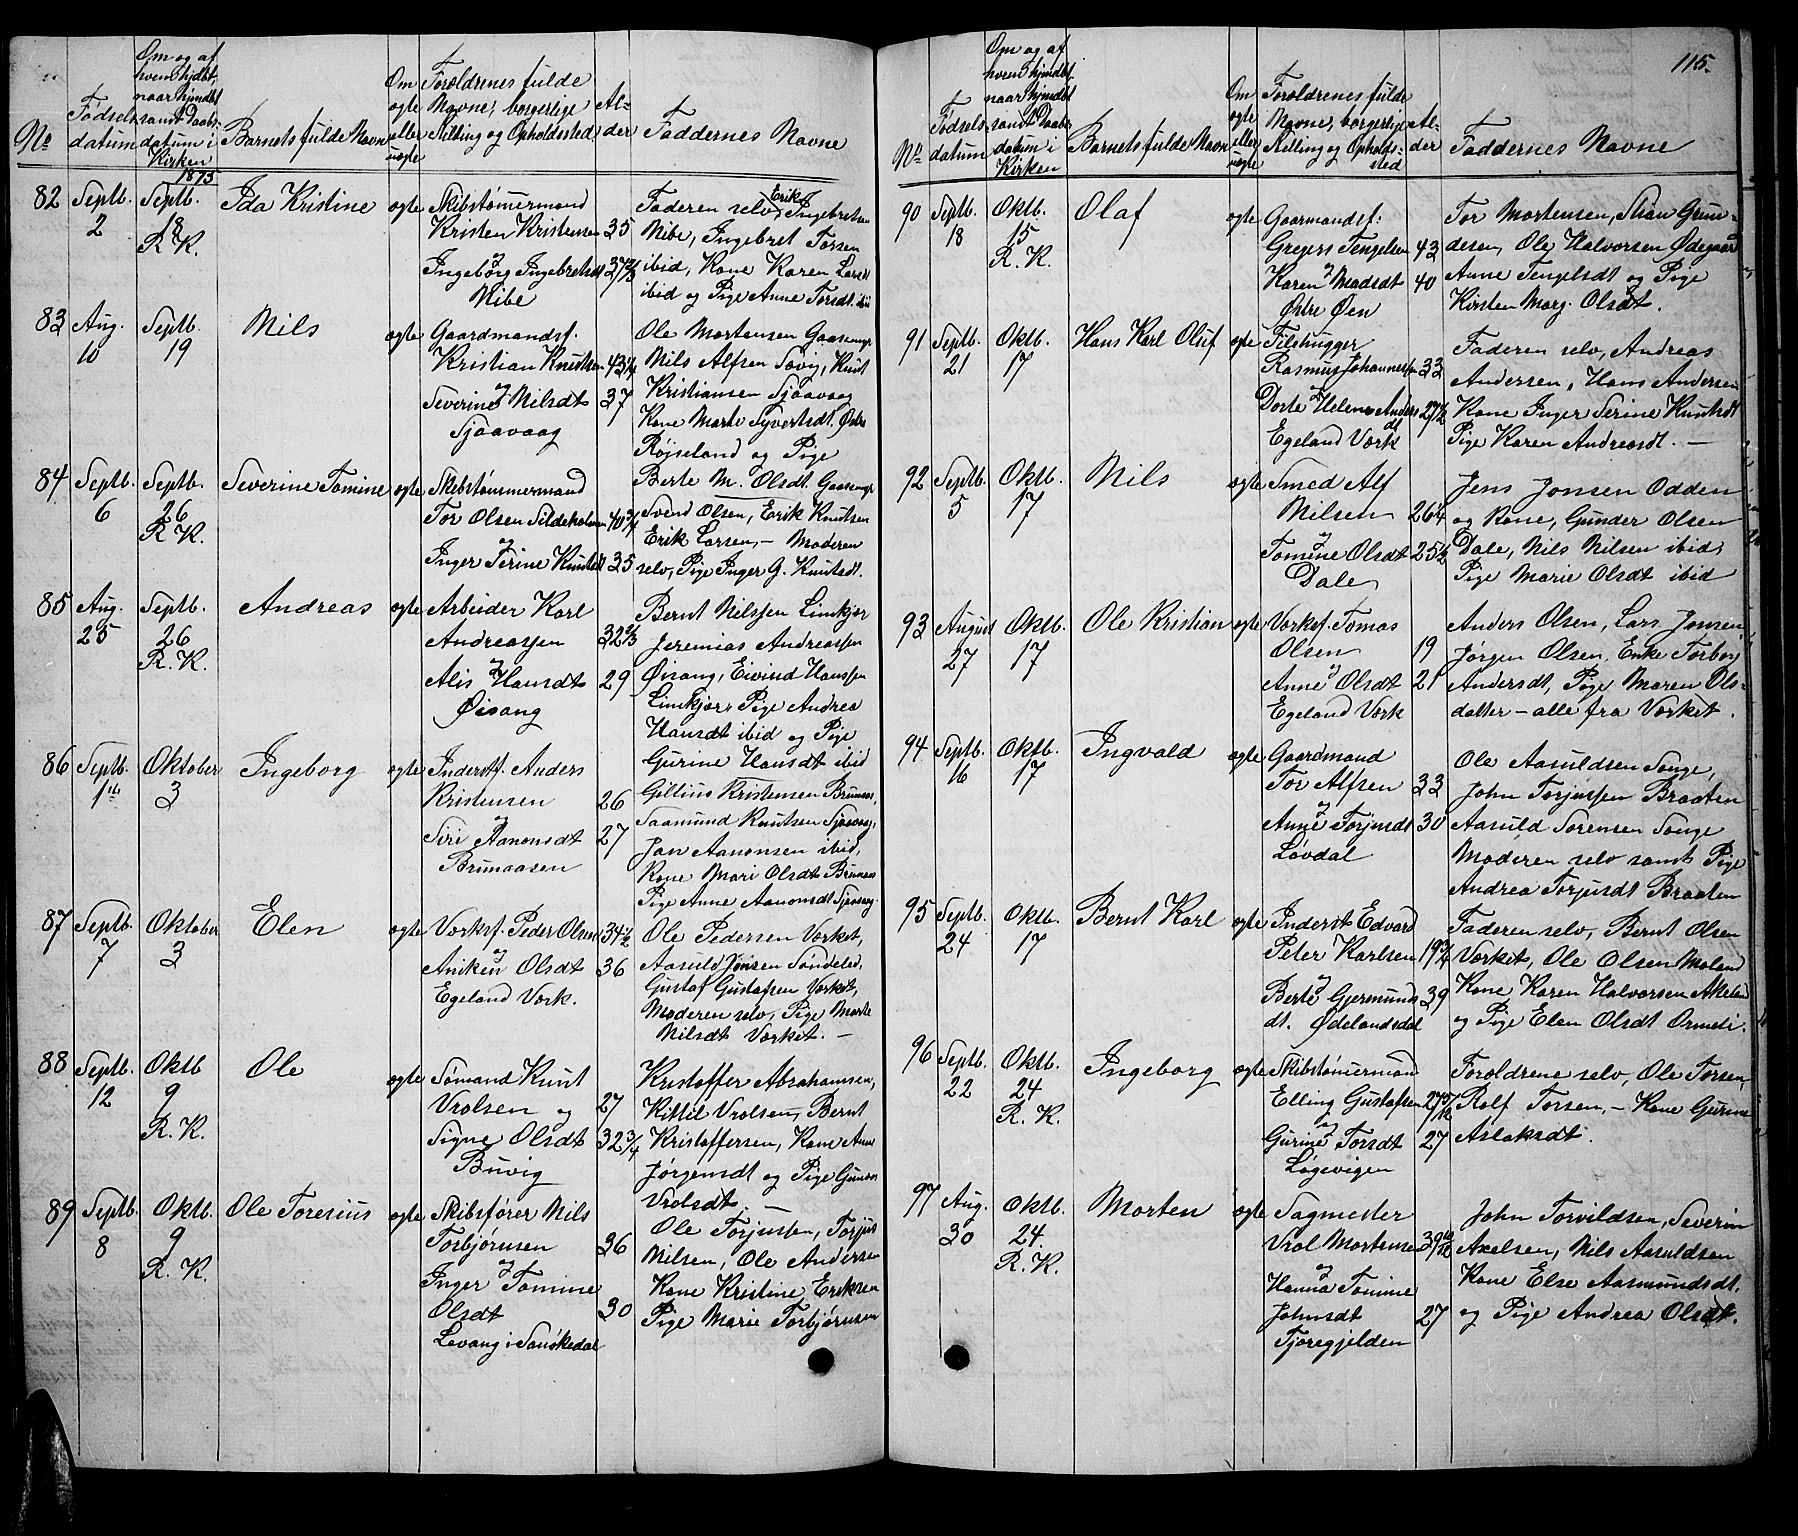 No
Fødsels-
datum
Om og af
hvem hjdbt,
naar hjmdbt
samt Daabs-
datum i
Kirken
1873
Barnets fulde Navn
Om
ægte
eller
uægte
Forældrenes fulde
Navne, borgerlige
Stilling og Opholdssted.
Al-
der
Faddernes Navne
82
Septb.
2
Septb.
18
R. K.
Ida Kristine
ægte
Skibstømermand
Kristen Kristensen 35
og
Ingeborg Ingebretsdt
Nibe
Faderen selv, Erik Ingebretsen
Nibe, Ingebret Torsen
ibid, Kone Karen Larsdt
ibid og Pige Anne Torsdt. ibid
83
Aug.
10
Septb.
19
Nils
ægte
Gaardmandsf.
Kristian Knutsen 43 1/4
og
Severine Nilsdt 37
Sjåavaag
Ole Mortensen Gaaseng,
Nils Alfsen Søvig, Knut
Kristiansen Sjåavaag
Kone Marte Syvertsdt. Østre
Røjseland og Pige
Berte M. Olsdt. Gaaseng
84
Septb.
6
Septb.
26
R. K.
Severine Tomine
ægte
Skibstømmermand
Tor Olsen Sildeholmen 40 3/4
og
Inger Serine Knutsdt 35
Svend Olsen, Erik Knutsen
Erik Larsen, – Moderen
selv, Pige Inger G. Knutsdt.
85
Aug.
25
Septb.
26
R. K.
Andreas
ægte
Arbeider Karl
Andreassen 32 2/3
og
Alis Hansdt 29
Øisang
Bernt Nilssen Limkjær
Jeremias Andreassen
Øisang, Eivind Hanssen
Limkjær, Pige Andrea
Hansdt ibid og Pige
Gurine Hansdt ibid
86
Septb.
1ste
Oktober
3
Ingeborg
ægte
Inderstf. Anders
Kristensen 26
og
Siri Aanonsdt 27
Brunaasen
Gillius Kristensen Brunaas,
Saamund Knutsen Sjåavaag,
Jan Aanonsen ibid,
Kone Mari Olsdt Brunaas
Pige Anne Aanonsdt Sjåavaag
87
Septb.
7
Oktober
3
Elen
ægte
Værksf. Peder Olsen 34 1/2
og
Aniken Olsdt 36
Egeland Værk.
Ole Pedersen Værket,
Aasuld Jensen Søndeled,
Gustaf Gustafsen Værket,
Moderen selv, Pige Marte
Nilsdt Værket. –
88
Septb.
12
Oktb
9
R. K.
Ole
ægte
Sømand Knut
Vrolsen og 27
Signe Olsdt 32 3/4
Buvig
Kristoffer Abrahamsen,
Kittil Vrolsen, Bernt
Kristoffersen, Kone Anne
Jørgensdt og Pige Gunor
Vrolsdt. –
89
Septb.
8
Oktb.
9
R. K.
Ole Toresius
ægte
Skibsfører Nils
Torbjørnsen 36
og
Inger Tomine
Olsdt 30
Levang i Sanøkedal
Ole Torjussen, Torjus
Nilsen, Ole Andersen
Kone Kristine Eriksen
Pige Marie Torbjørnsen
115.
No
Fødsels-
datum
Om og af
hvem hjmdbt.
naar hjmdbt
samt Daabs-
datum i
Kirken
Barnets fulde Navn
Om
ægte
eller
uægte
Forældrenes fulde
Navne, borgerlige
Stilling og Opholds-
sted
Al-
der
Faddernes Navne
90
Septb.
18
Oktb.
15
R. K.
Olaf
ægte
Gaarmandsf.
Gregers Tengelsen 43
og
Karen Madsdt 40
Østre Øen
Tor Mortensen, Stian Gun-
desen, Ole Halvorsen Ødegaard
Anne Tengelsdt og Pige
Kirsten Marg. Olsdt.
91
Septb.
21
Oktb.
17
Hans Karl Oluf
ægte
Filehugger
Rasmus Johannesen 33
og
Dorte Helene Anders 27 1/2
dt
Egeland Værk
Faderen selv, Andreas
Andersen, Hans Andersen
Kone Inger Serine Knutsdt
Pige Karen Andreasdt. –
92
Septb.
5
Oktb.
17
Nils
ægte
Smed Alf
Nilsen 26 1/4
og
Tomine Olsdt 25 1/2
Dale
Jens Jonsen Odden
og Kone, Gunder Olsen
Dale, Nils Nilsen ibid,
Pige Marie Olsdt ibid
93
August
27
Oktb.
17
Ole Kristian
ægte
Værksf. Tomas
Olsen 19
og
Anne Olsdt 21
Egeland Værk
Anders Olsen, Lars Jonsen,
Jørgen Olsen, Enke Torbor
Andersdt, Pige Maren Ols-
datter – alle fra Værket.
94
Septb.
16
Oktb.
17
Ingvald
ægte
Gaardmand
Tor Alfsen 33
og
Anne Torjusdt 30
Løvdal
Ole Aasuldsen Songe,
John Torjussen Braaten
Aasuld Sørensen Songe
Moderen selv samt Pige
Andrea Torjusdt Braaten
95
Septb.
24
Oktb.
17
Bernt Karl
ægte
Inderst Edvard
Peter Karlsen 19 3/4
og
Berte Gjermunds 39
dt. Ødelandsdal
Faderen selv, Bernt Olsen
Værket, Ole Olsen Moland
Kone Karen Halvorsen Akeland
og Pige Elen Olsdt Ormeli.
96
Septb.
22
Oktb.
24
R. K.
Ingeborg
ægte
Skibstømermand
Elling Gustafsen 27 5/12
og
Gurine Torsdt 27
Løgevigen
Forældrene selv, Ole Torsen,
Rolf Torsen, – Kone Gurine
Aslaksdt.
97
Aug.
30
Oktb.
24.
R. K.
Morten
ægte
Sagmester
Vrol Mortensen 39 10/12
og
Hanna Tomine
Johnsdt 27
Tjoregjelden
John Torvildsen, Severin
Axelsen, Nils Aasuldsen
Kone Else Aasmundsdt.
og Pige Andrea Olsdt.